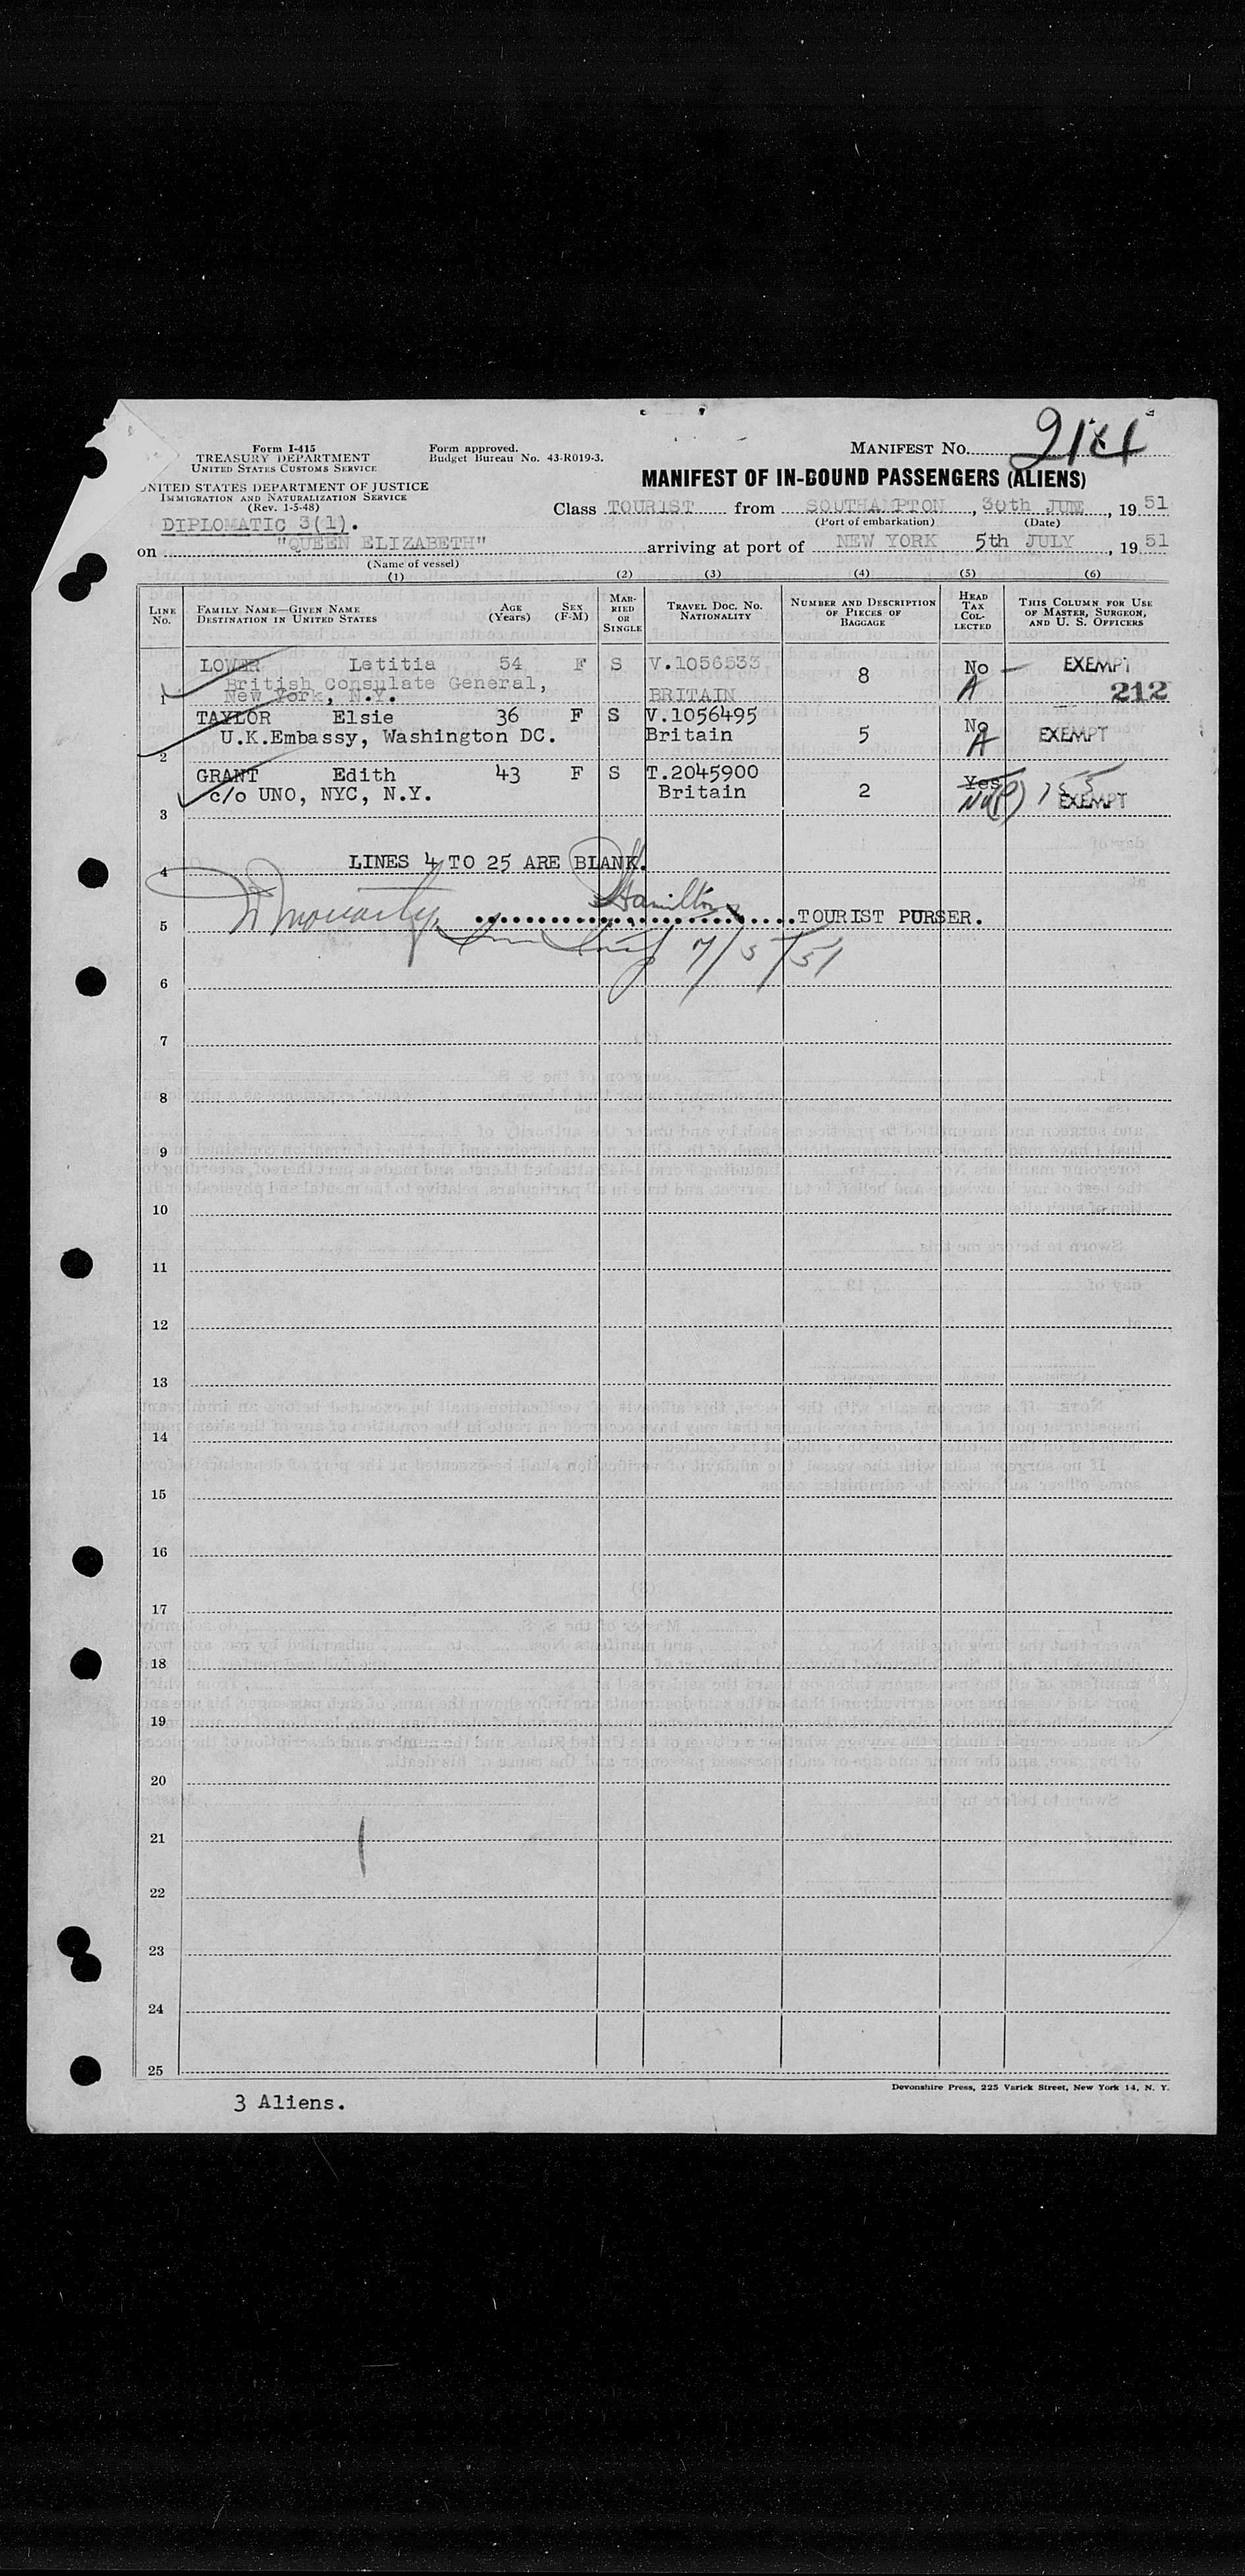 Form I-415
TREASURY DEPARTMENT
UNITED STATES CUSTOMS SERVICE
UNITED STATES DEPARTMENT OF JUSTICE
IMMIGRATION AND NATURALIZATION SERVICE
(Rev. 1-5-48)
Form approved.
Budget Bureau No. 43-R019-3.
MANIFEST No.
MANIFEST OF IN-BOUND PASSENGERS (ALIENS)
DIPLOMATIC 3(1).
Class TOURIST from SOUTHAMPTON, 30th JUNE, 1951
(Port of embarkation) (Date)
on "QUEEN ELIZABETH" arriving at port of NEW YORK 5th JULY, 1951
(Name of vessel)
(1) (2) (3) (4) (5) (6)
LINE No.
FAMILY NAME—GIVEN NAME
DESTINATION IN UNITED STATES
AGE (Years)
SEX (F-M)
MARRIED OR SINGLE
TRAVEL DOC. NO.
NATIONALITY
NUMBER AND DESCRIPTION OF PIECES OF BAGGAGE
HEAD TAX COLLECTED
THIS COLUMN FOR USE OF MASTER, SURGEON, AND U. S. OFFICERS
LOWER Letitia 54 F S V.1056533 8 No — EXEMPT
British Consulate General,
1 New York, N.Y. BRITAIN A 212
TAYLOR Elsie 36 F S V.1056495 5 No
U.K.Embassy, Washington DC. Britain A EXEMPT
2
GRANT Edith 43 F S T.2045900 2 Yes
c/o UNO, NYC, N.Y. Britain No(P) 155 EXEMPT
3
LINES 4 TO 25 ARE BLANK.
4
Hamilton
5 TOURIST PURSER.
7/5/51
6
7
8
9
10
11
12
13
14
15
16
17
18
19
20
21
22
23
24
25
Devonshire Press, 225 Varick Street, New York 14, N. Y.
3 Aliens.